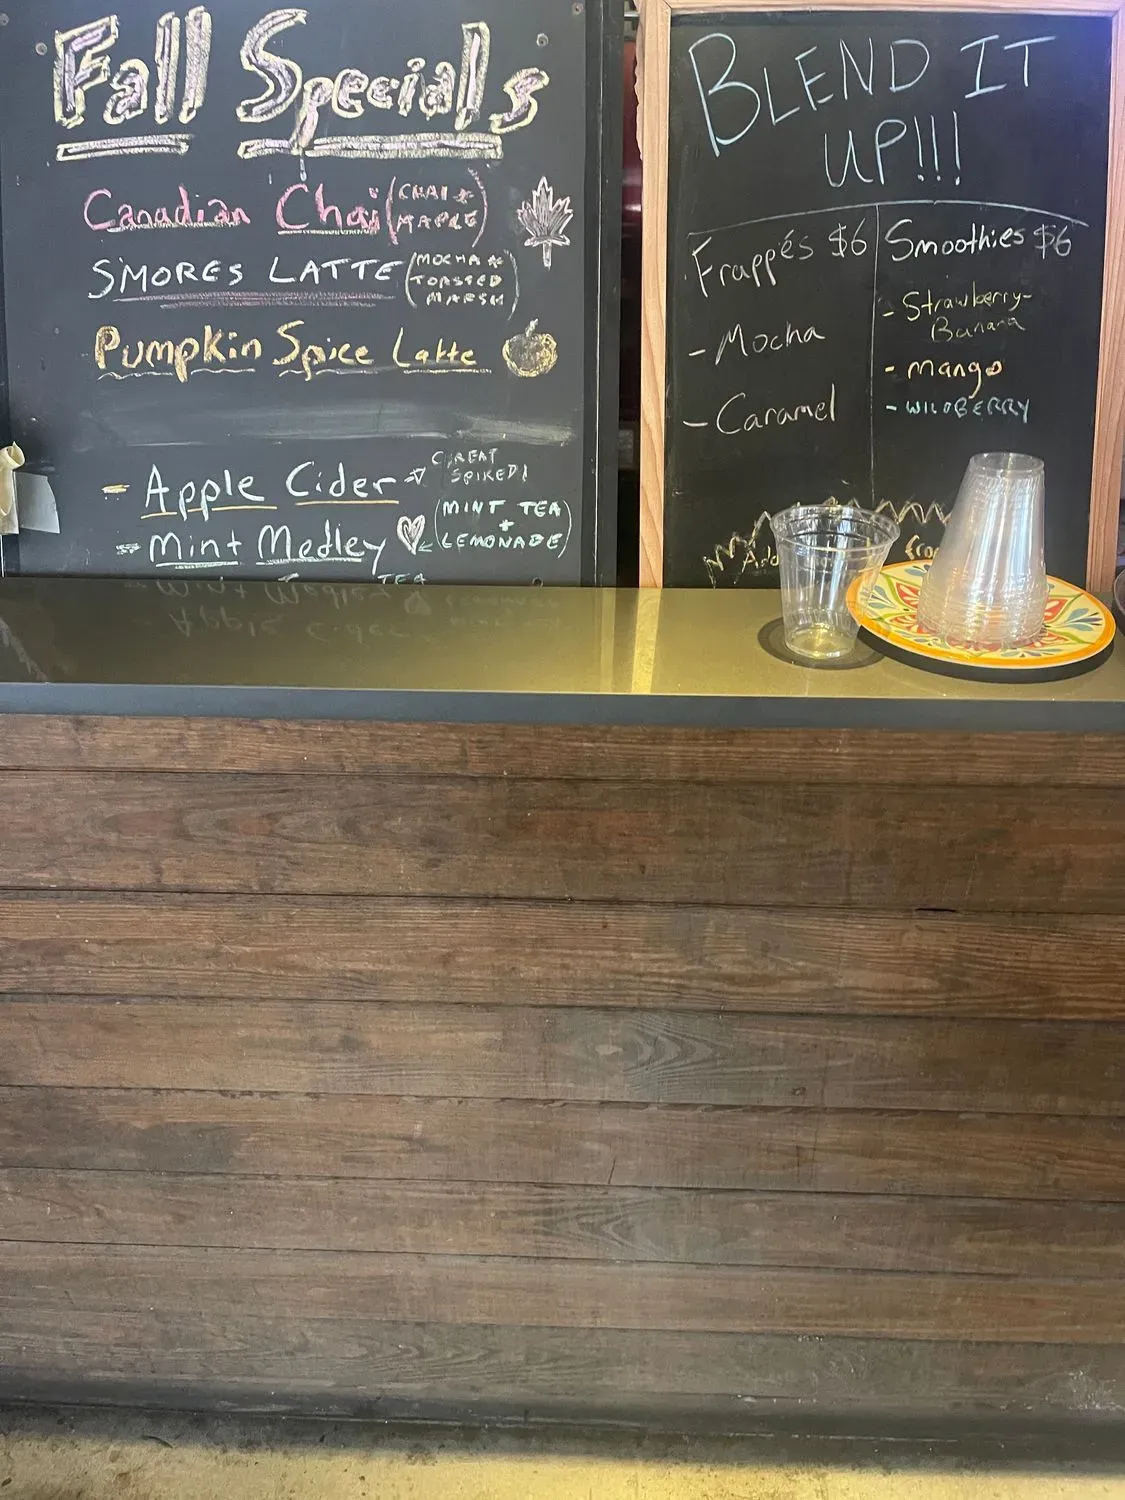 Fall Specials
Canadian Chai (CHAI &
MAPLE)
S'MORES LATTE (MOCHA &
TOASTED
MARSH)
Pumpkin Spice Latte
- Apple Cider GREAT
SPIKED!
- Mint Medley (MINT TEA
+
LEMONADE)
BLEND IT
UP!!!
Frappés $6
- Mocha
- Caramel
Smoothies $6
- Strawberry-
Banana
- mango
- WILDBERRY
Add